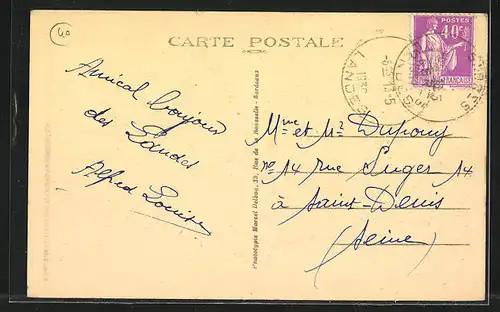 40
CARTE POSTALE
POSTES
40c
FRANÇAISE
LANDES
Amical bonjour
des Landes
Alfred Louise
Mme et Mr Dupouy
no 14 rue Suger 14
à Saint-Denis
(Seine)
Phototypie Marcel Delboy, 19, Rue de la Rousselle - Bordeaux